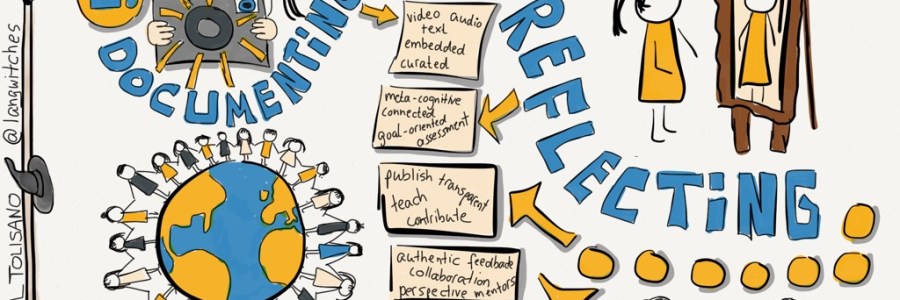 @langwitches
TOLISANO
DOCUMENTING
video audio
text
embedded
curated
meta-cognitive
connected
goal-oriented
assessment
publish transparent
teach
contribute
authentic feedback
collaboration
perspective mentors
REFLECTING